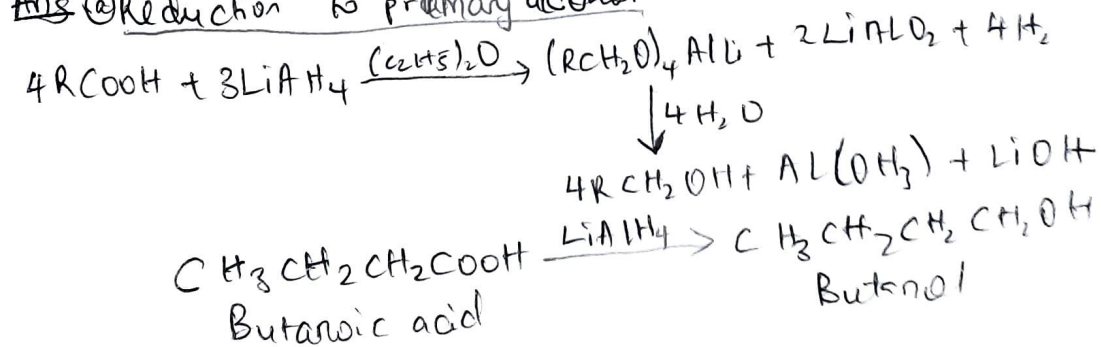 (a) Reduction to primary alcohol
4RCOOH + 3LiAH₄ (C₂H₅)₂O → (RCH₂O)₄AlLi + 2LiALO₂ + 4H₂
↓ 4H₂O
4RCH₂OH + AL(OH₃) + LiOH
CH₃CH₂CH₂COOH LiAlH₄ → CH₃CH₂CH₂CH₂OH
Butanoic acid Butanol